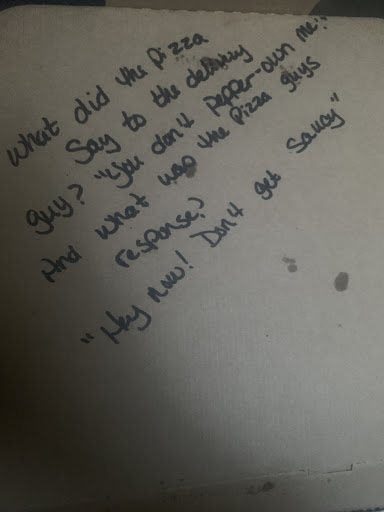 What did the Pizza
Say to the delivery
guy? "You don't pepper-own me!"
And what was the Pizza guys
response?
"Hey now! Don't get Saucy"